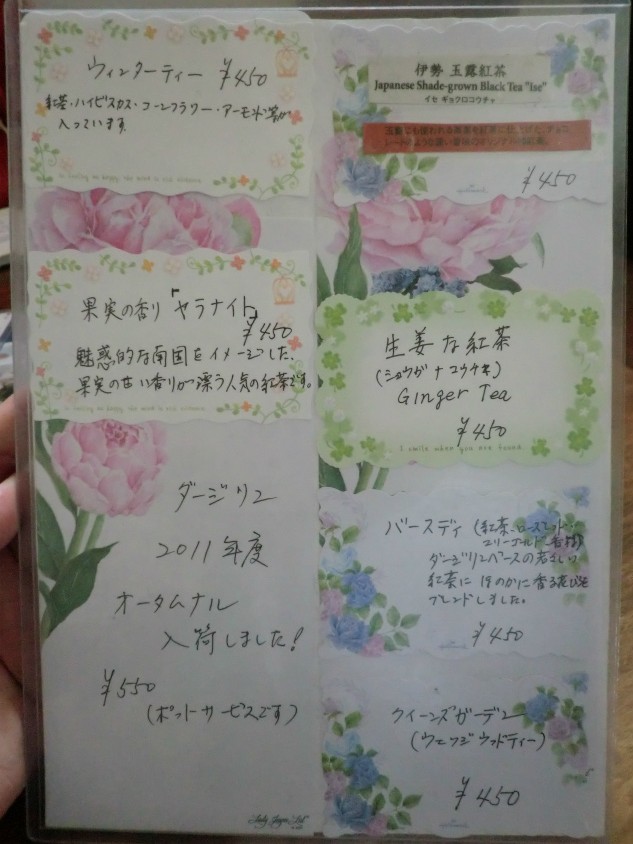 ウィンターティー ¥450
紅茶・ハイビスカス・コーンフラワー・アーモンド等が
入っています。
果実の香り「ヤラナイト」
¥450
魅惑的な南国をイメージした、
果実の甘い香りが漂う人気の紅茶です。
ダージリン
2011年度
オータムナル
入荷しました!
¥550
(ポットサービスです)
伊勢 玉露紅茶
Japanese Shade-grown Black Tea "Ise"
イセ ギョクロコウチャ
¥450
生姜な紅茶
(ショウガナコウチャ)
Ginger Tea
¥450
I smile when you are found.
バースディ (紅茶・ローズレッド・
ダージリンベースの
紅茶にほのかに香る花びらを
ブレンドしました。
¥450
クイーンズガーデン
(ウェッジウッドティー)
¥450